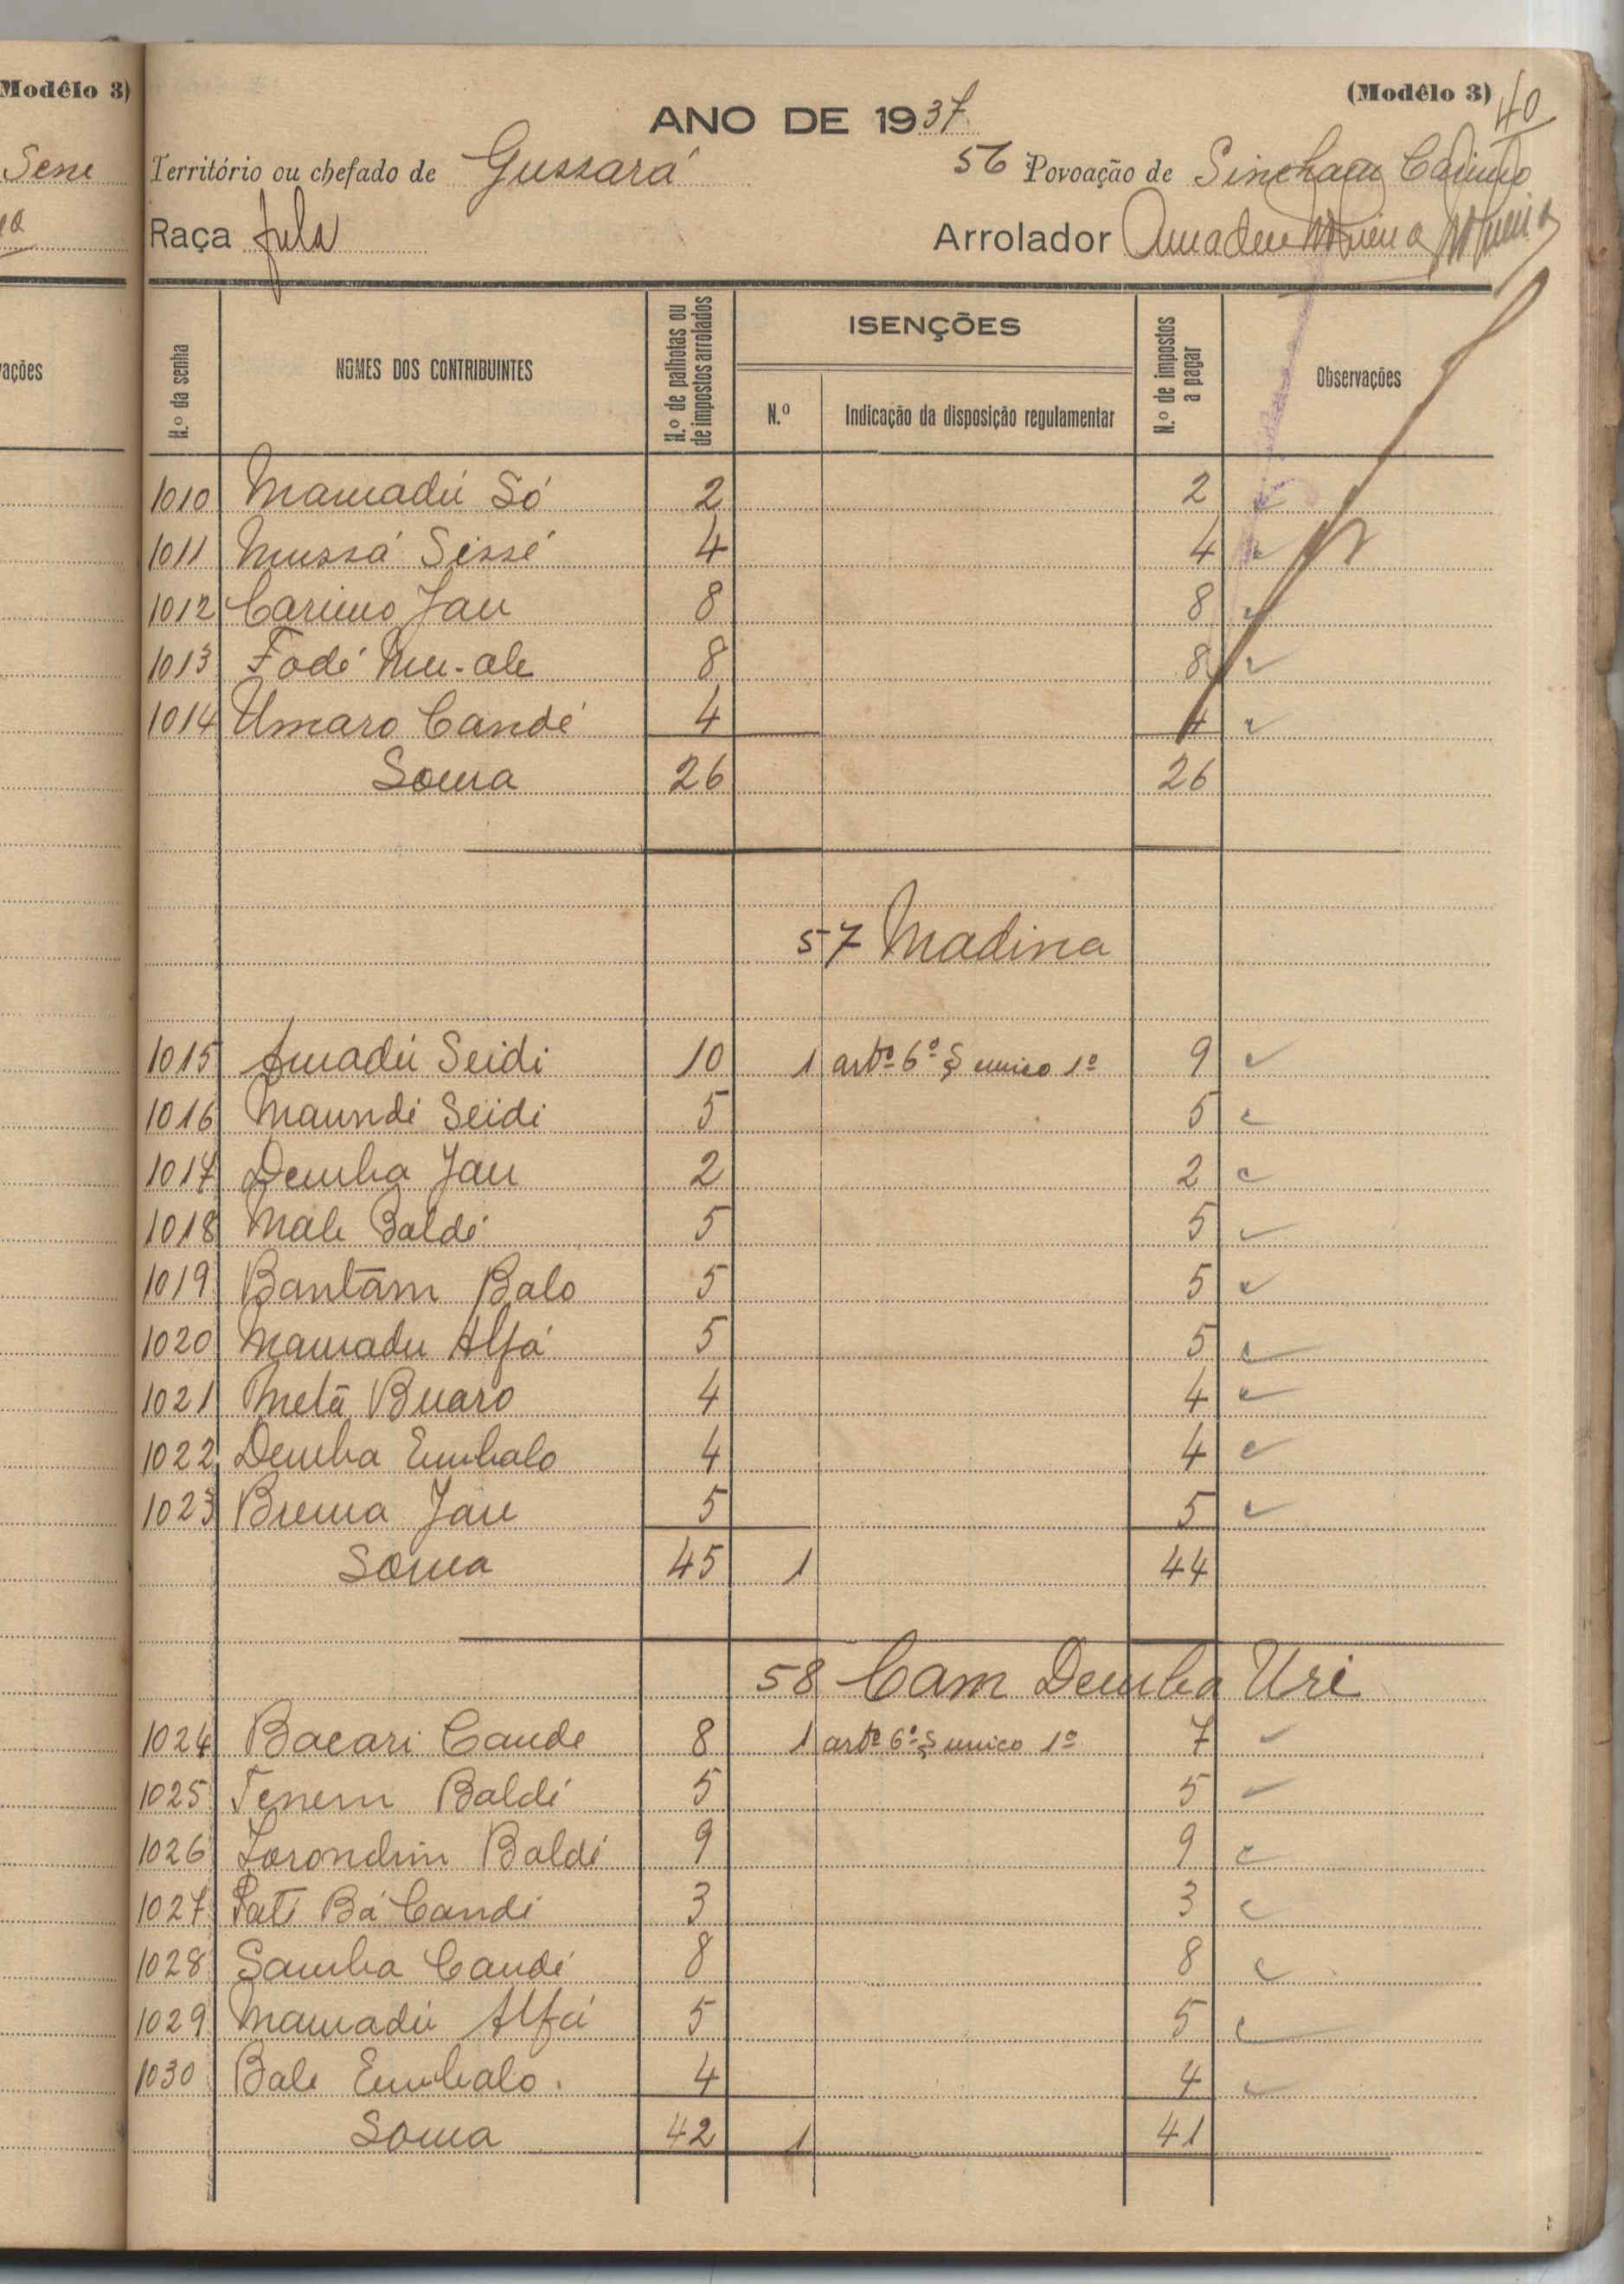 Modêlo 3)
Sene
vações
(Modêlo 3)
40
ANO DE 1937
Território ou chefado de Gussará
56 Povoação de Sincham Carimo
Raça fula
Arrolador Amadeu
N.º da senha
NOMES DOS CONTRIBUINTES
N.º de palhotas ou de impostos arrolados
ISENÇÕES
N.º
Indicação da disposição regulamentar
N.º de impostos a pagar
Observações
1010 Mamadú Só 2 2
1011 Mussá Sissé 4 4
1012 Carimo Jau 8 8
1013 Fodé Mu-ale 8 8
1014 Umaro Candé 4 4
Soma 26 26
57 Madina
1015 Amadú Seidi 10 1 artº 6º § unico 1º 9
1016 Maundé Seidi 5 5
1017 Demba Jau 2 2
1018 Male Baldé 5 5
1019 Bantām Balo 5 5
1020 Mamadu Alfá 5 5
1021 Metā Buaro 4 4
1022 Demba Embalo 4 4
1023 Brema Jau 5 5
Soma 45 1 44
58 Cam Demba Uri
1024 Bacari Cande 8 1 artº 6º § unico 1º 7
1025 Tenem Baldé 5 5
1026 Baldé 9 9
1027 Pati Bá Candé 3 3
1028 Samba Candé 8 8
1029 Mamadú Alfá 5 5
1030 Bale Embalo. 4 4
Soma 42 1 41